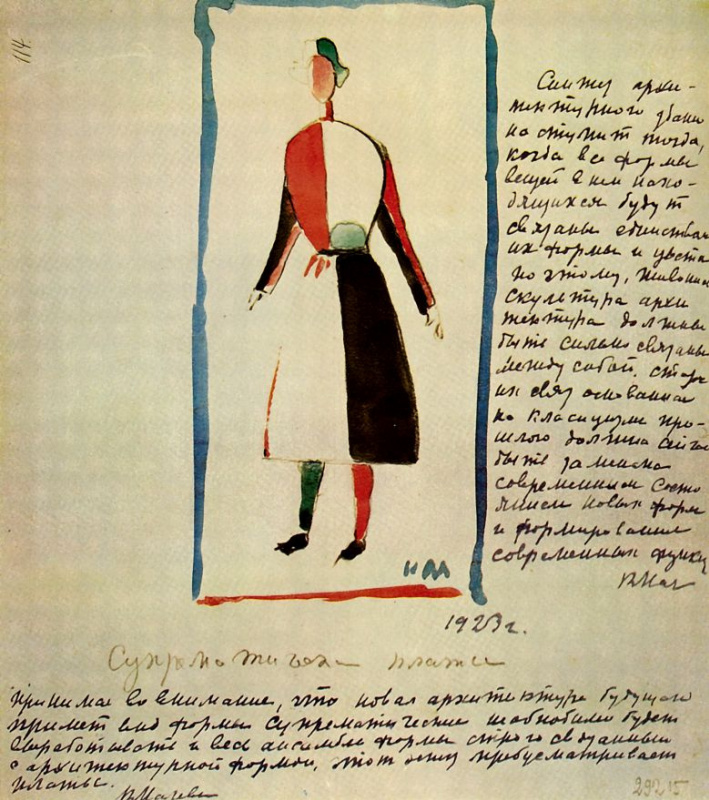 114.
архи-
тектурного здани
наступит тогда,
когда все формы
вещей в нем нахо-
дящихся будут
связаны единством
их формы и цвета
по этому, живопис
скульптура архи
тектура должны
быть сильно связаны
между собой.
их связ основанная
на класицизме про-
шлого должна
быть заменена
современным состо
янием новых форм
и формированием
современных функц
КМ
1923 г.
Супрематическ платье
Принимая во внимание, что новая архитектура будущего
примет вид формы супрематические необходимо будет
выработать и весь ансамбль формы строго связанный
с архитектурной формой, этот эскиз предусматривает
платье.
КМалевич
29215